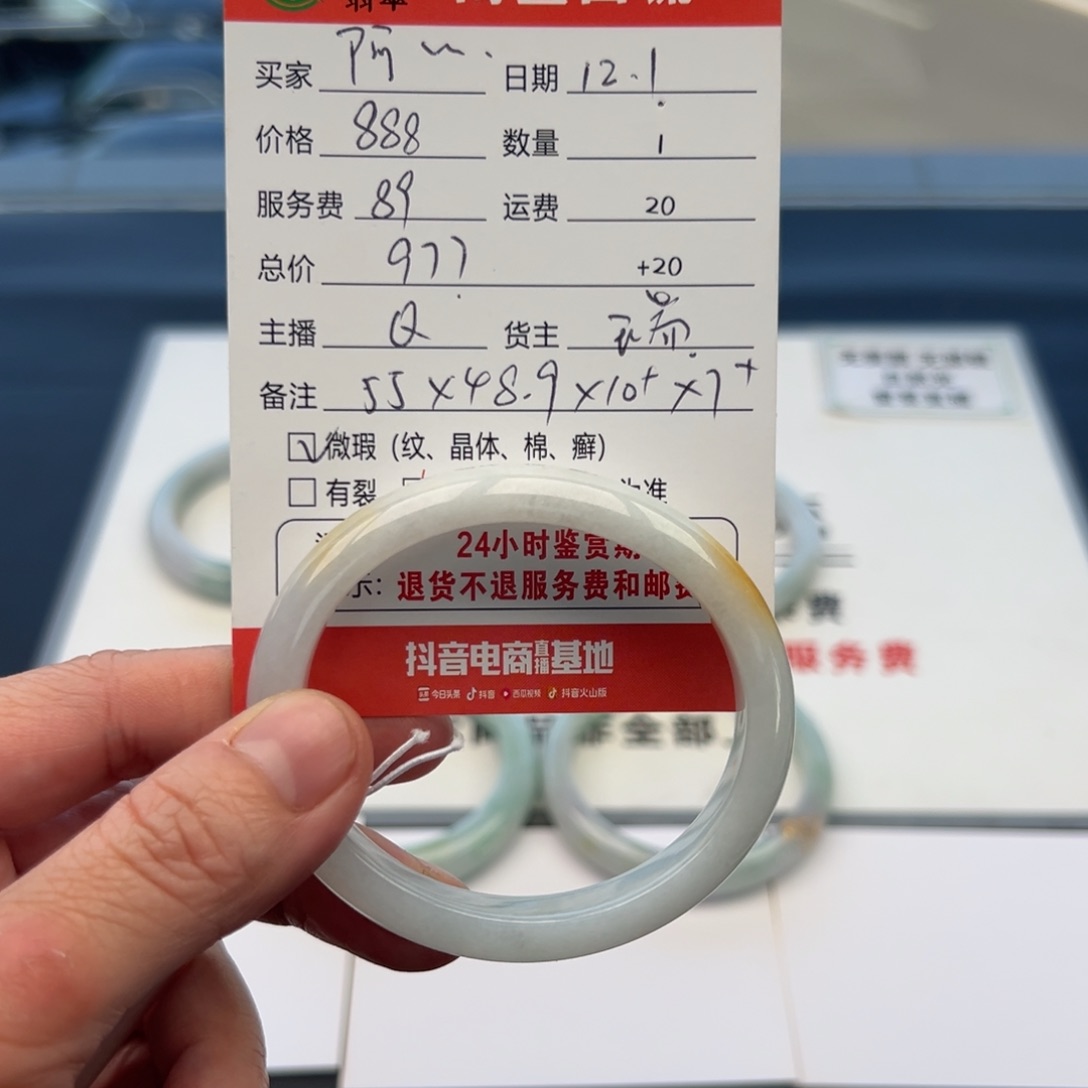 翡翠
买家 阿 日期 12.1
价格 888 数量 1
服务费 89 运费 20
总价 977 +20
主播 Q 货主
备注 55×48.9×10+×7+
☑微瑕（纹、晶体、棉、癣）
□有裂 为准
24小时鉴赏期
示：退货不退服务费和邮费
抖音电商直播基地
今日头条 抖音 西瓜视频 抖音火山版
费
服务费
全部